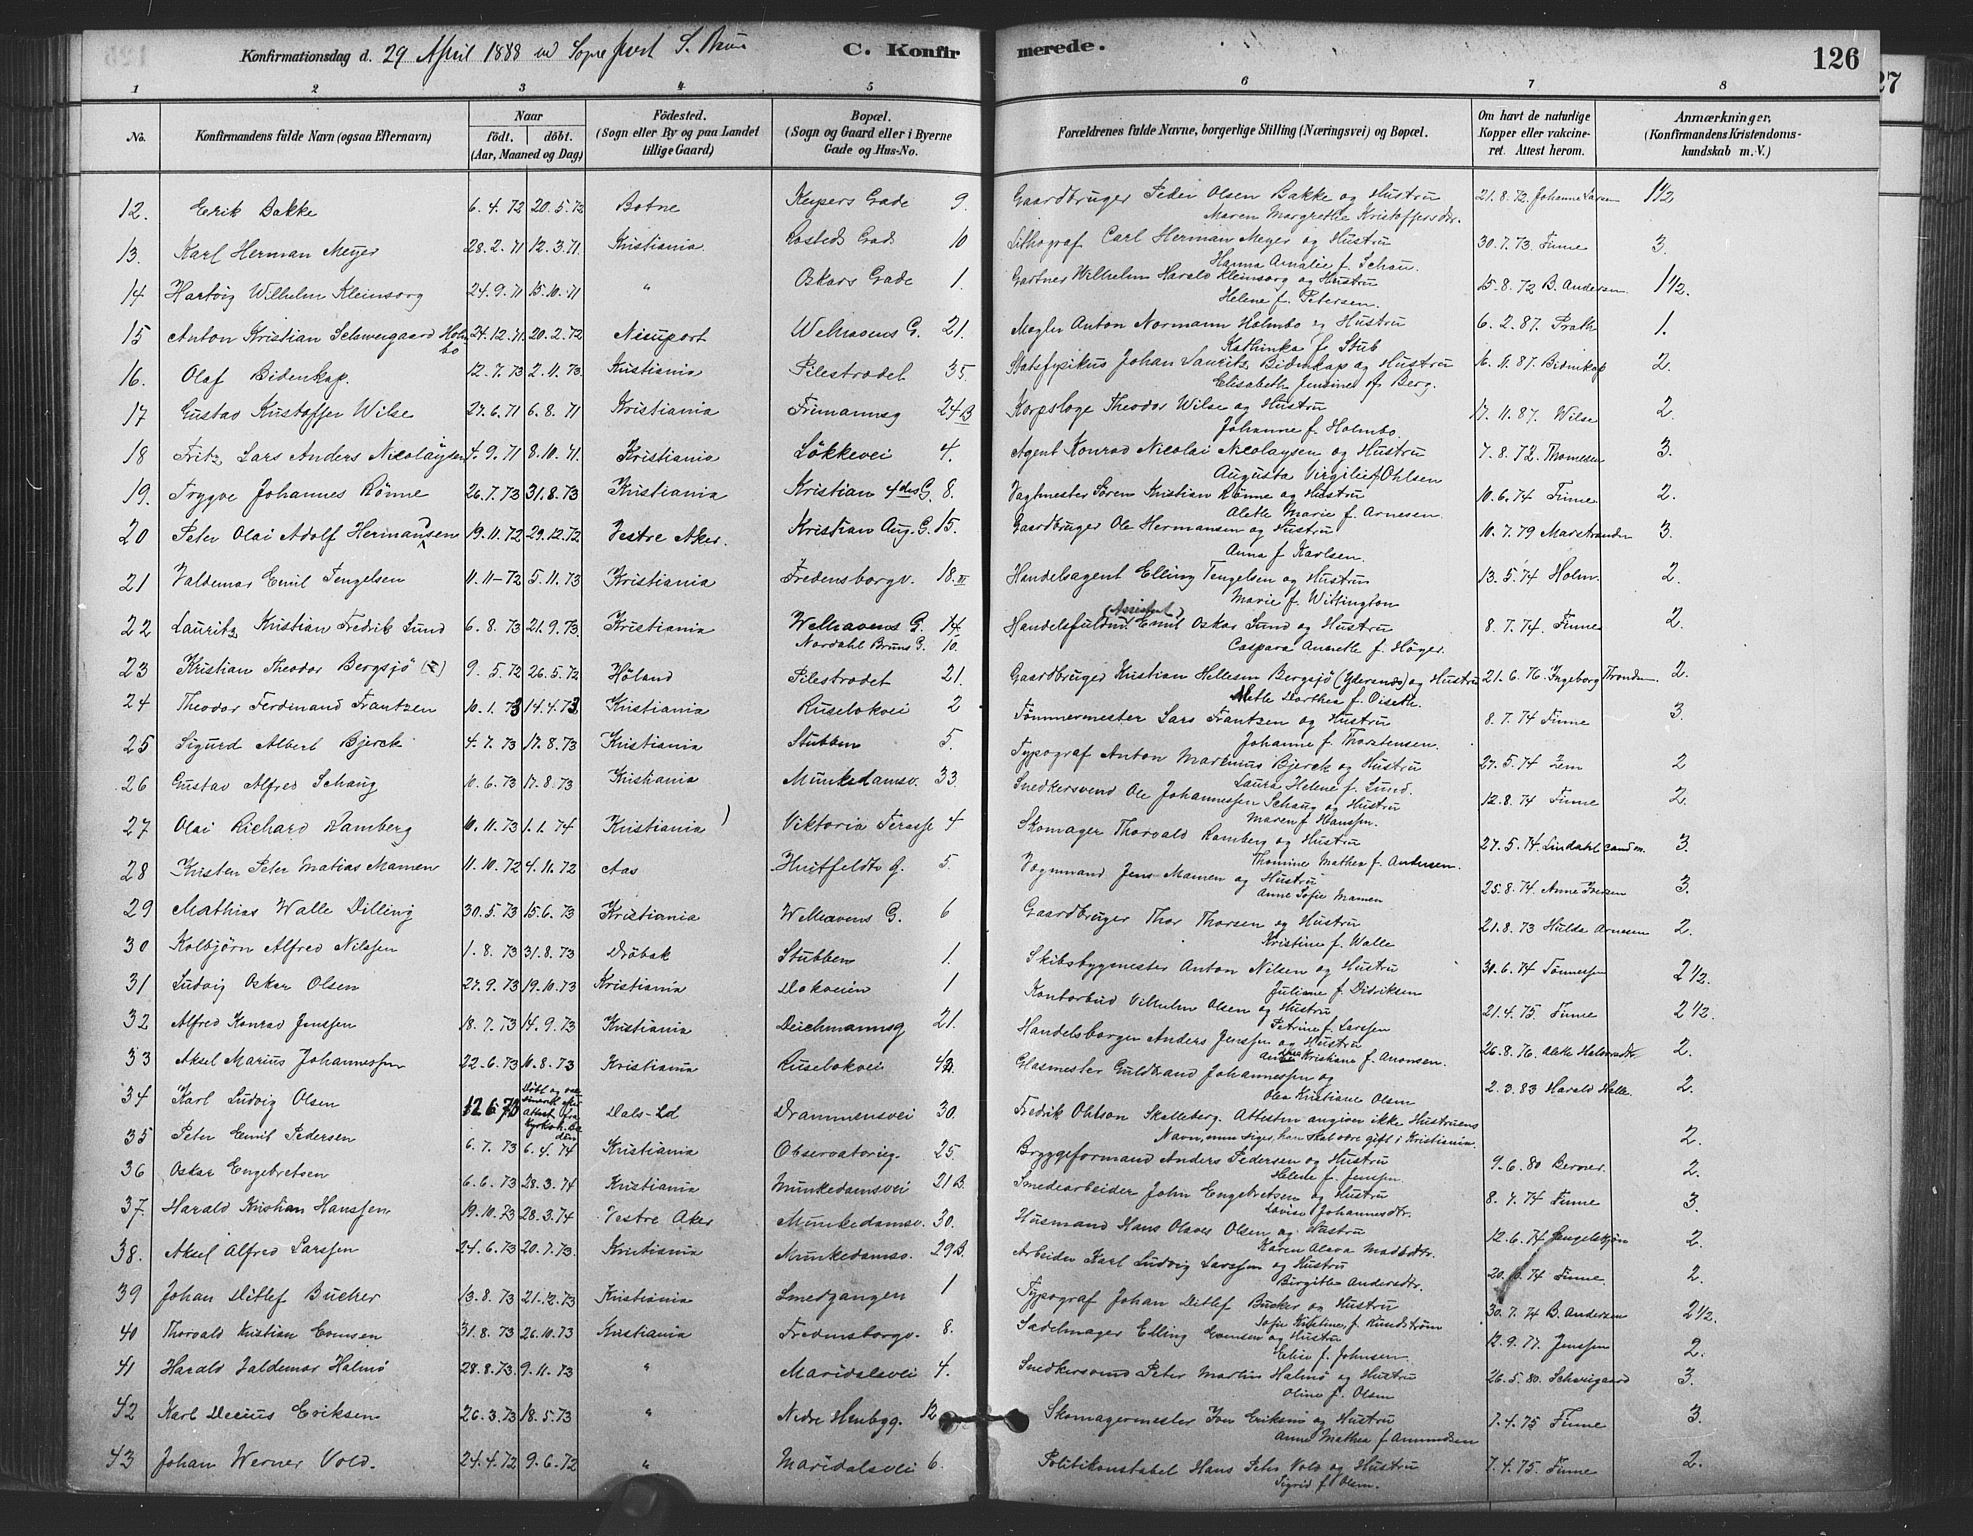 Konfirmationsdag d. 29 April 1888 ved Sogneprest S. C. Konfirmerede. 126
27
1 2 3 4 5 6 7 8
No. Konfirmandens fulde Navn (ogsaa Efternavn) Naar födt, döbt. (Aar, Maaned og Dag) Födested. (Sogn eller By og paa Landet tillige Gaard) Bopæl. (Sogn og Gaard eller i Byerne Gade og Hus-No. Forældrenes fulde Navne, borgerlige Stilling (Næringsvei) og Bopæl. Om havt de naturlige Kopper eller vakcineret. Attest herom. Anmærkninger, (Konfirmandens Kristendomskundskab m. V.)
12. Erik Bakke 6.4.72 20.5.72 Botne Keysers Gade 9. Gaardbruger Peder Olsen Bakke og Hustru 21.8.72. Johanne Larsen 1½
Maren Margrethe Kristoffersdtr.
13. Karl Herman Meyer 28.2.71 12.3.71. Kristiania. Rosteds Gad 10 Lithograf Carl Herman Meyer og Hustru 30.7.73 Finne 3.
Hanna Amalie f. Schau.
14 Hartvig Wilhelm Kleinsorg 24.9.71 15.10.71 " Oskars Gade 1. Gartner Wilhelm Harald Kleinsorg og Hustru 15.8.72 B. Andersen 1½.
Helene f. Petersen.
15 Anton Kristian Schweigaard Holmbo 24.12.71 20.2.72 Nieuport Welhavens G. 21. Megler Anton Normann Holmbo og Hustru 6.2.87. Prath 1.
Kathinka f. Stub
16. Olaf Bidenkap. 12.7.73 2.11.73. Kristiania Pilestrædet 35. Statsfysikus Johan Lauritz Bidenkap og Hustru 16.11.87. Bidenkap 2.
Elisabeth Jensine f. Berg.
17 Gustav Kristoffer Wilse 27.6.71 6.8.71 Kristiania Frimannsg 24B Korpslæge Theodor Wilse og Hustru 17.11.87. Wilse 2.
Johanne f. Holmbo.
18 Fritz Lars Anders Nicolaysen 4.9.71 8.10.71. Kristiania Løkkevei 4. Agent Konrad Nicolai Nicolaysen og Hustru 7.8.72. Thomesen 3.
Augusta Virgilie f. Ohlsen
19. Trygve Johannes Rönne 26.7.73 31.8.73 Kristiania Kristian 4des G. 8. Vagtmester Sören Kristian Rönne og Hustru 10.6.74 Finne 2.
Alette Marie f. Arnesen.
20 Peter Olai Adolf Hermansen 19.11.72 29.12.72 Vestre Aker. Kristian Aug. G. 15. Gaardbruger Ole Hermansen og Hustru 10.7.79 Marstrander 3.
Anna f Karlsen.
21 Valdemar Emil Tengelsen 11.11-72 5.11.73 Kristiania Fredensborgv. 18.II Handelsagent Elling Tengelsen og Hustru 13.5.74 Holm. 2.
Marie f. Wittington
22 Lauritz Kristian Fredrik Lund 6.8.73 21.9.73. Kristiania Welhavens G. 14. Handelsfuldm. (Assistent) Emil Oskar Lund og Hustru 8.7.74. Finne 2.
Nordahl Bruns G. 10. Caspara Annette f. Höyer.
23 Kristian Theodor Bergsjö 9.5.72 26.5.72 Höland Pilestrædet 21. Gaardbruger Kristian Hellesen Bergsjö (Ydersnæs) og Hustru 21.6.76 Ingeborg 2.
Mette Dorthea f.
24 Theodor Ferdinand Frantzen 10.1.73 14.4.73 Kristiania Ruselökvei 2 Tömmermester Lars Frantzen og Hustru 8.7.74 Finne 3.
Johanne f. Thorstensen.
25 Sigurd Albert Bjerck 4.7.73 17.8.73 Kristiania Stubben 5. Typograf Anton Marinius Bjerck og Hustru 27.5.74 Lem 2
Laura Helene f. Lund.
26 Gustav Alfred Schaug 10.6.73 17.8.73 Kristiania Munkedamsv. 33. Snedkersvend Ole Johannessen Schaug og Hustru 12.8.74 Finne 2.
Maren f. Hanssen.
27 Olai Richard Ramberg 10.11.73 1.1.74 Kristiania Viktoria Terasse 4 Skomager Thorvald Ramberg og Hustru 27.5.74. Lindahl cand m. 3.
Thomine Mathea f. Andersen.
28 Kristen Peter Matias Mamen 11.10.72 4.11.72 Aas Huitfeldts G. 5 Vognmand Jens Mamen og Hustru 25.8.74. Anne Iversen 3.
Anne Sofie Mamen
29 Mathias Walle Dilling 30.5.73 15.6.73 Kristiania Welhavens G. 6 Gaardbruger Thor Thorsen og Hustru 21.8.73 Hulda Arnesen 2.
Kristine f. Walle
30 Kolbjörn Alfred Nilssen 1.8.73 31.8.73 Dröbak Stubben 1. Skibsbygmester Anton Nilsen og Hustru 30.6.74 Tönnessen 2½.
Juliane f. Didriksen
31 Ludvig Oskar Olsen 27.9.73 19.10.73 Kristiania Dokveien 1 Kontorbud Vilhelm Olsen og Hustru 21.4.75. Finne 2½.
Petrine f. Larssen
32 Alfred Konrad Jenssen 18.7.73 14.9.73 Kristiania Deichmannsg 21. Handelsborger Anders Jenssen og Hustru 26.8.76. Alette Halvorsdtr. 2.
Kristiane f. Aronsen.
33 Aksel Marius Johannessen 22.6.73 10.8.73 Kristiania Ruselökvei Glasmester Guldbrand Johannessen og 2.3.83 Harald Halle. 2.
Olea Kristiane Olsen
34 Karl Ludvig Olsen 12.6.73 Dals-Ed Drammensvei 30. Fredrik Ohlson Skalleberg. Attesten angiver ikke Hustruens 2.
Navn, men siger, han skal være gift i Kristiania.
35 Peter Emil Pedersen 6.7.73 6.4.74 Kristiania Observatorieg. 25. Bryggeformand Anders Pedersen og Hustru 9.6.80 Berner. 2.
Helene f. Jenssen.
36 Oskar Engebretsen 6.6.73 28.3.74 Kristiania Munkedamsvei 21B. Smedearbeider John Engebretsen og Hustru 8.7.74 Finne 3.
Lovise Johannesdtr.
37. Harald Kristian Hanssen 19.10.73 28.3.74 Vestre Aker Munkedamsv. 30. Husmand Hans Olaves Olsen og Hustru 12.6.74 2.
Karen Alava Madsdtr.
38. Aksel Alfred Larssen 24.6.73 20.7.73. Kristiania Munkedamsv. 29B. Arbeider Karl Ludvig Larssen og Hustru 20.6.74 Finne. 2.
Birgitte Andersdtr.
39 Johan Ditlef Bucher 13.8.73 21.12.73 Kristiania Smedgangen 1 Typograf Johan Ditlef Bucher og Hustru 30.7.74 B. Andersen 2½.
Sofie Kristine f. Kundström
40 Thorvald Kristian Evensen 31.8.73 26.10.73 Kristiania Fredensborgv. 8. Sadelmager Elling Evensen og Hustru 12.9.77. Jenssen 2.
Elise f. Johnsen.
41 Harald Valdemar Halmö 28.8.73. 9.11.73 " Maridalsvei 4. Snedkersvend Peter Martin Halmö og Hustru 26.5.80. Schweigaard 3.
Oline f. Olsen
42 Karl Decius Eriksen 26.3.73 18.5.73 " Nedre 12 Skomagermester Iver Eriksen og Hustru 7.4.75 Finne 3.
Anne Mathea f. Amundsen
43 Johan Werner Vold. 24.4.72 9.6.72 " Maridalsvei 6. Politikonstabel Hans Peter Vold og Hustru 7.4.75. Finne 2.
Sigrid f. Olsen.